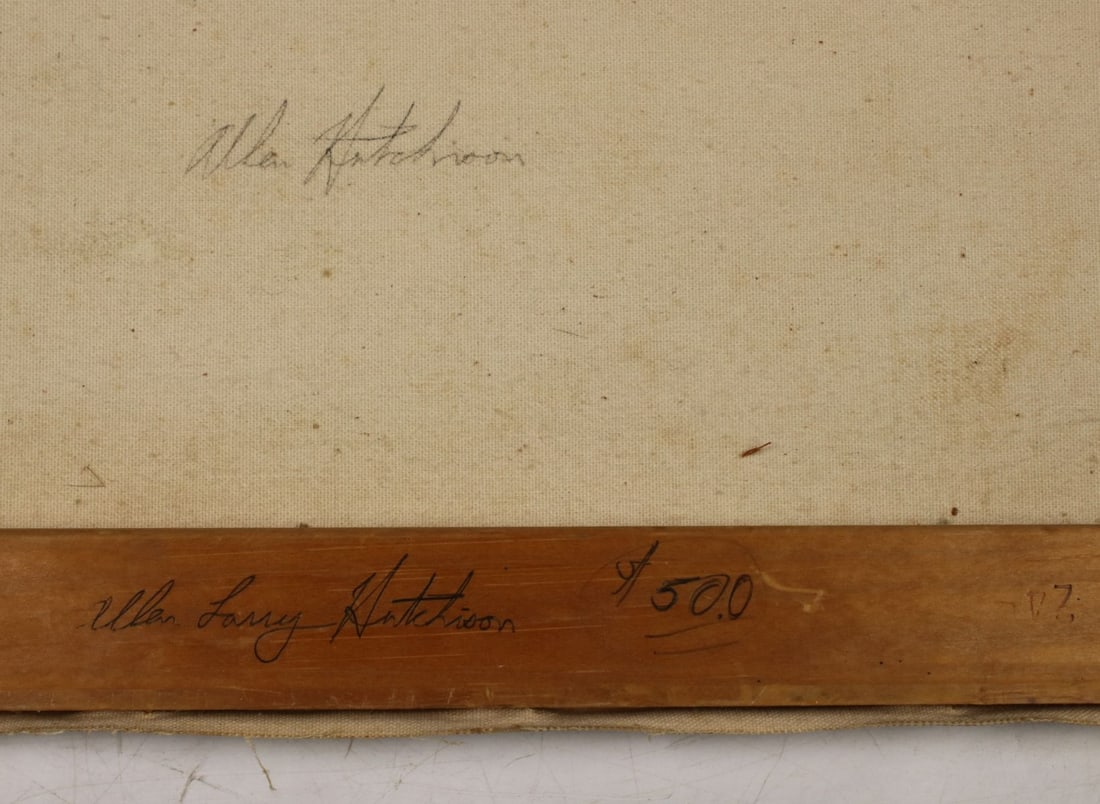 Allen Hutchison
Allen Larry Hutchison $50.0